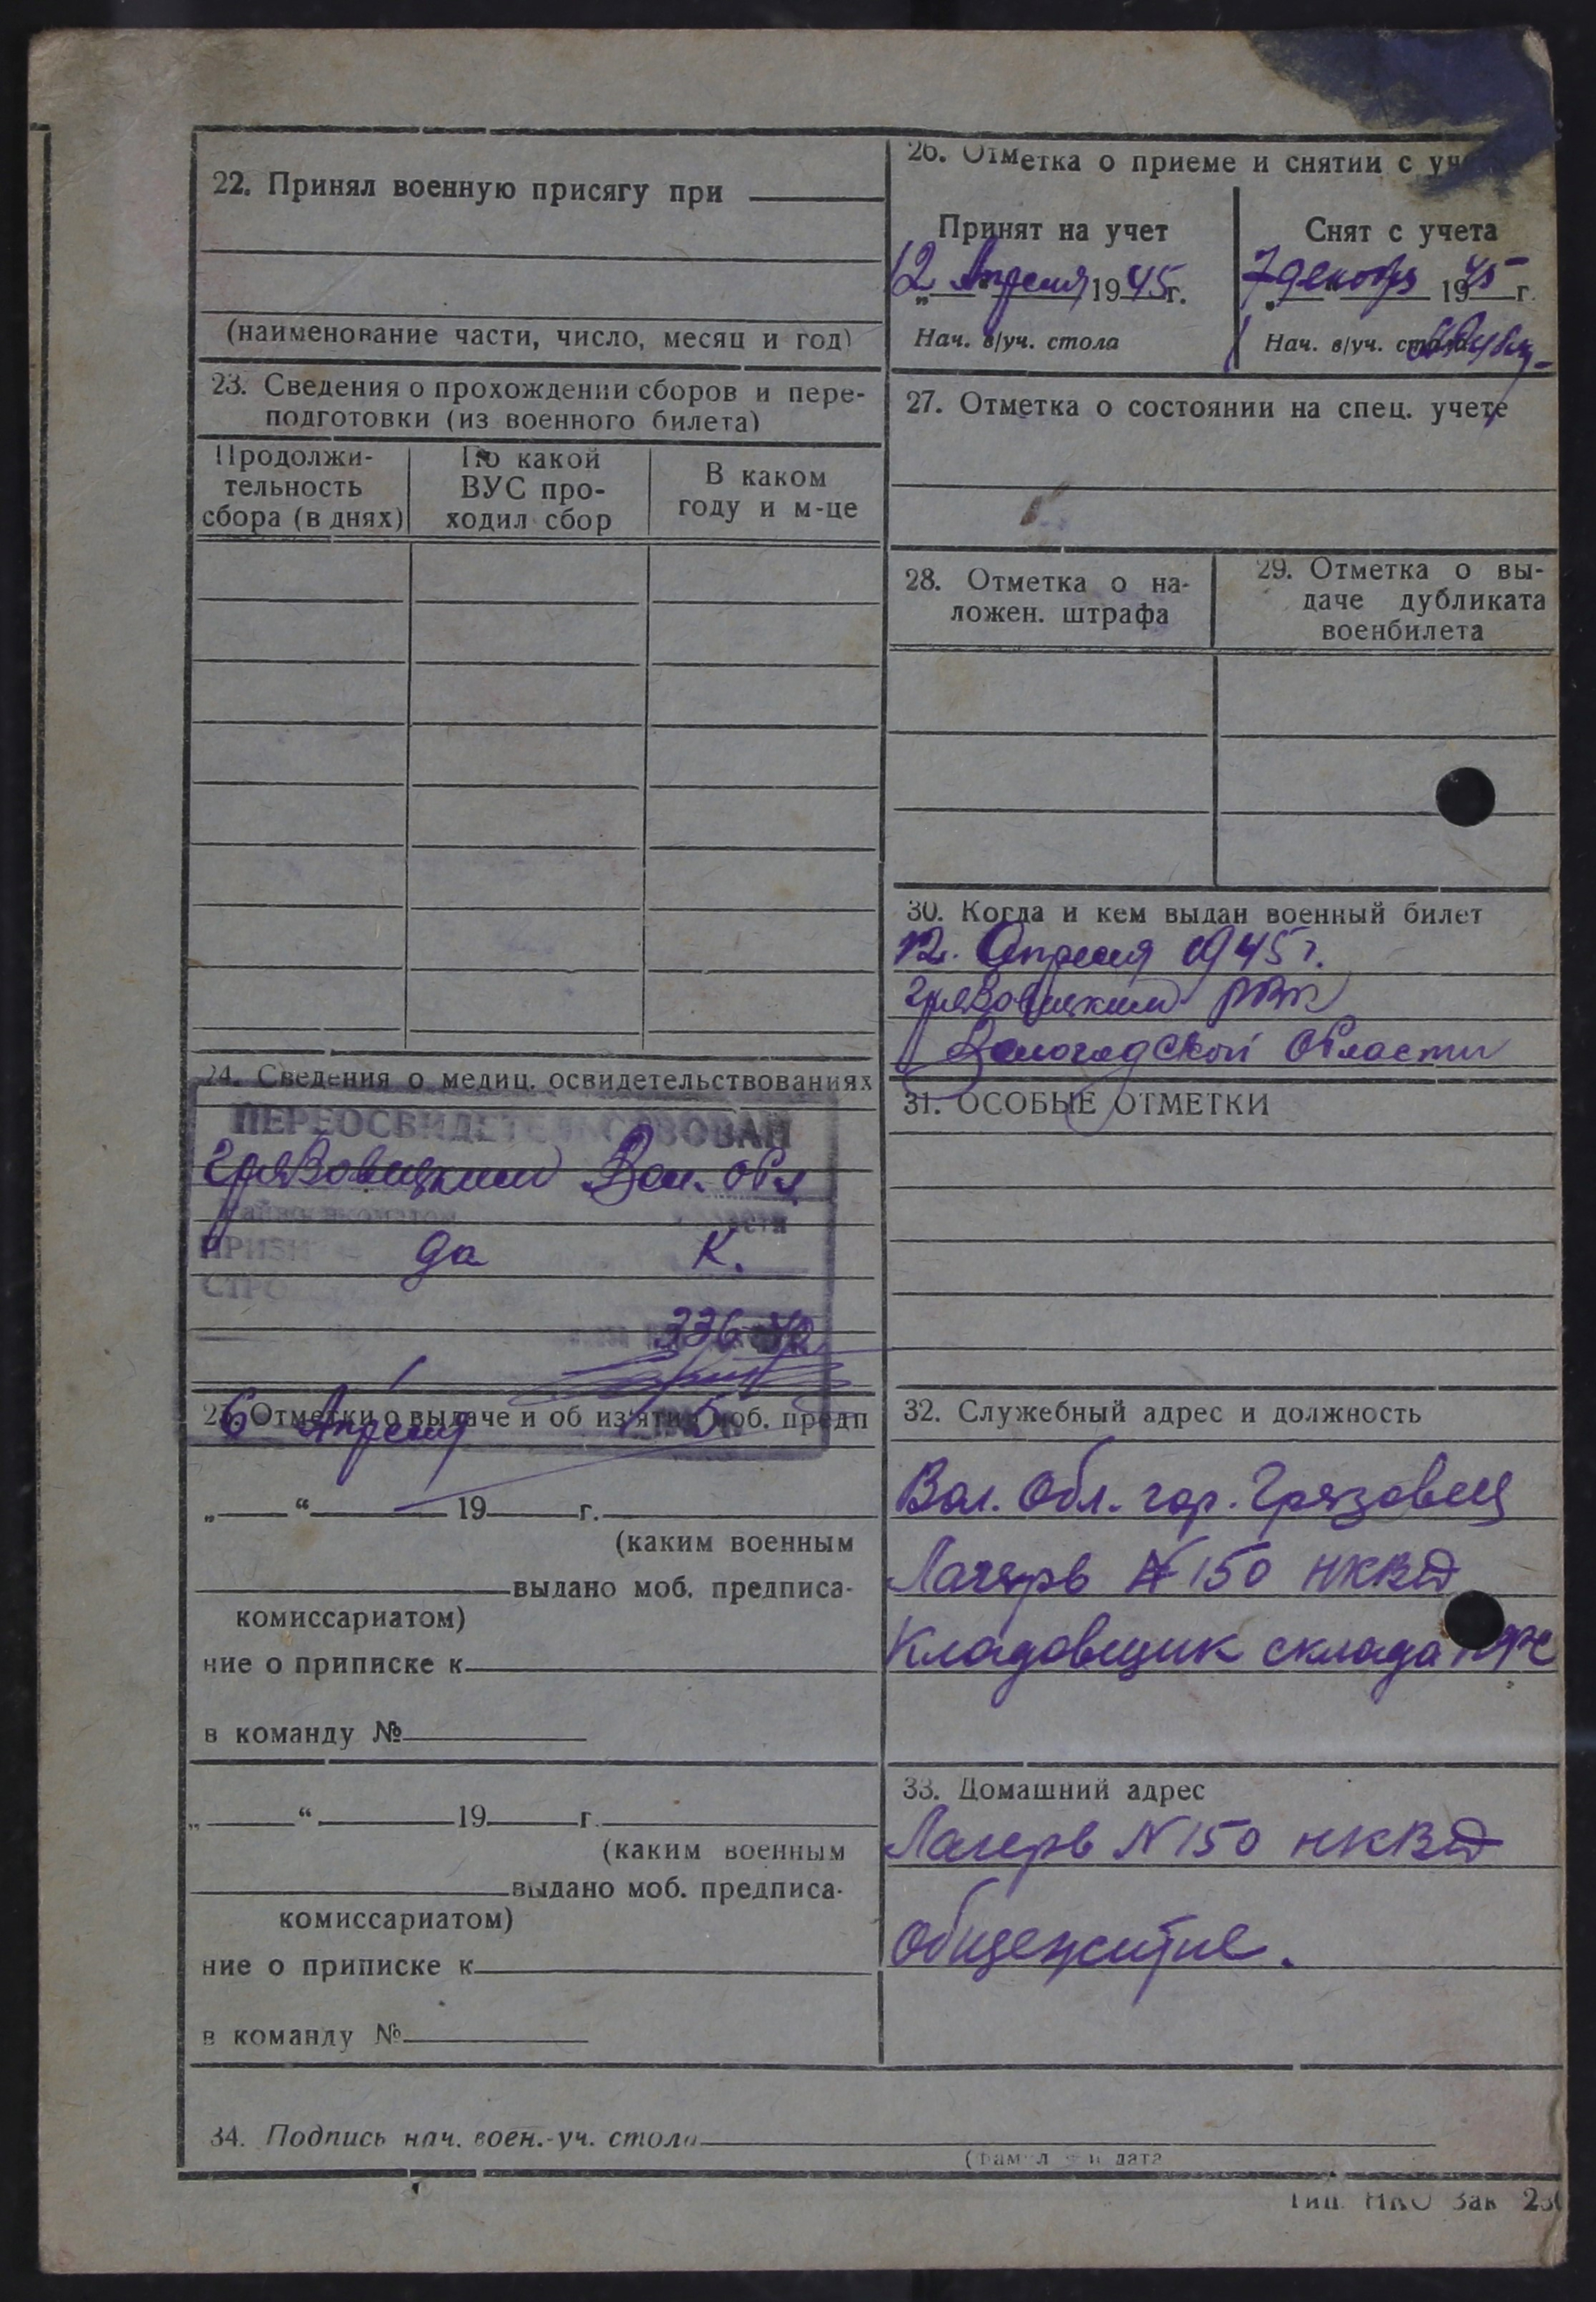 22. Принял военную присягу при
(наименование части, число, месяц и год)
23. Сведения о прохождении сборов и пере-
подготовки (из военного билета)
Продолжи-
тельность
сбора (в днях)
По какой
ВУС про-
ходил сбор
В каком
году и м-це
24. Сведения о медиц. освидетельствованиях
ПЕРЕОСВИДЕТЕЛЬСТВОВАН
Грязовецким Вол. обл
да К.
336
6 Апреля
25. Отметки о выдаче и об изъятии моб. предп
„ “ 19 г.
(каким военным
выдано моб. предписа-
комиссариатом)
ние о приписке к
в команду №
„ “ 19 г.
(каким военным
выдано моб. предписа-
комиссариатом)
ние о приписке к
в команду №
26. Отметка о приеме и снятии с уч
Принят на учет
12 Апреля 1945 г.
Нач. в/уч. стола
Снят с учета
7 декабря 1945 г.
Нач. в/уч. стола
27. Отметка о состоянии на спец. учете
28. Отметка о на-
ложен. штрафа
29. Отметка о вы-
даче дубликата
военбилета
30. Когда и кем выдан военный билет
12. Апреля 1945 г.
Грязовецким РВК
Вологодской области
31. ОСОБЫЕ ОТМЕТКИ
32. Служебный адрес и должность
Вол. Обл. гор. Грязовец
Лагерь № 150 НКВД
Кладовщик склада
33. Домашний адрес
Лагерь N 150 НКВД
общежитие.
34. Подпись нач. воен.-уч. стола
Тип. НКО Зак